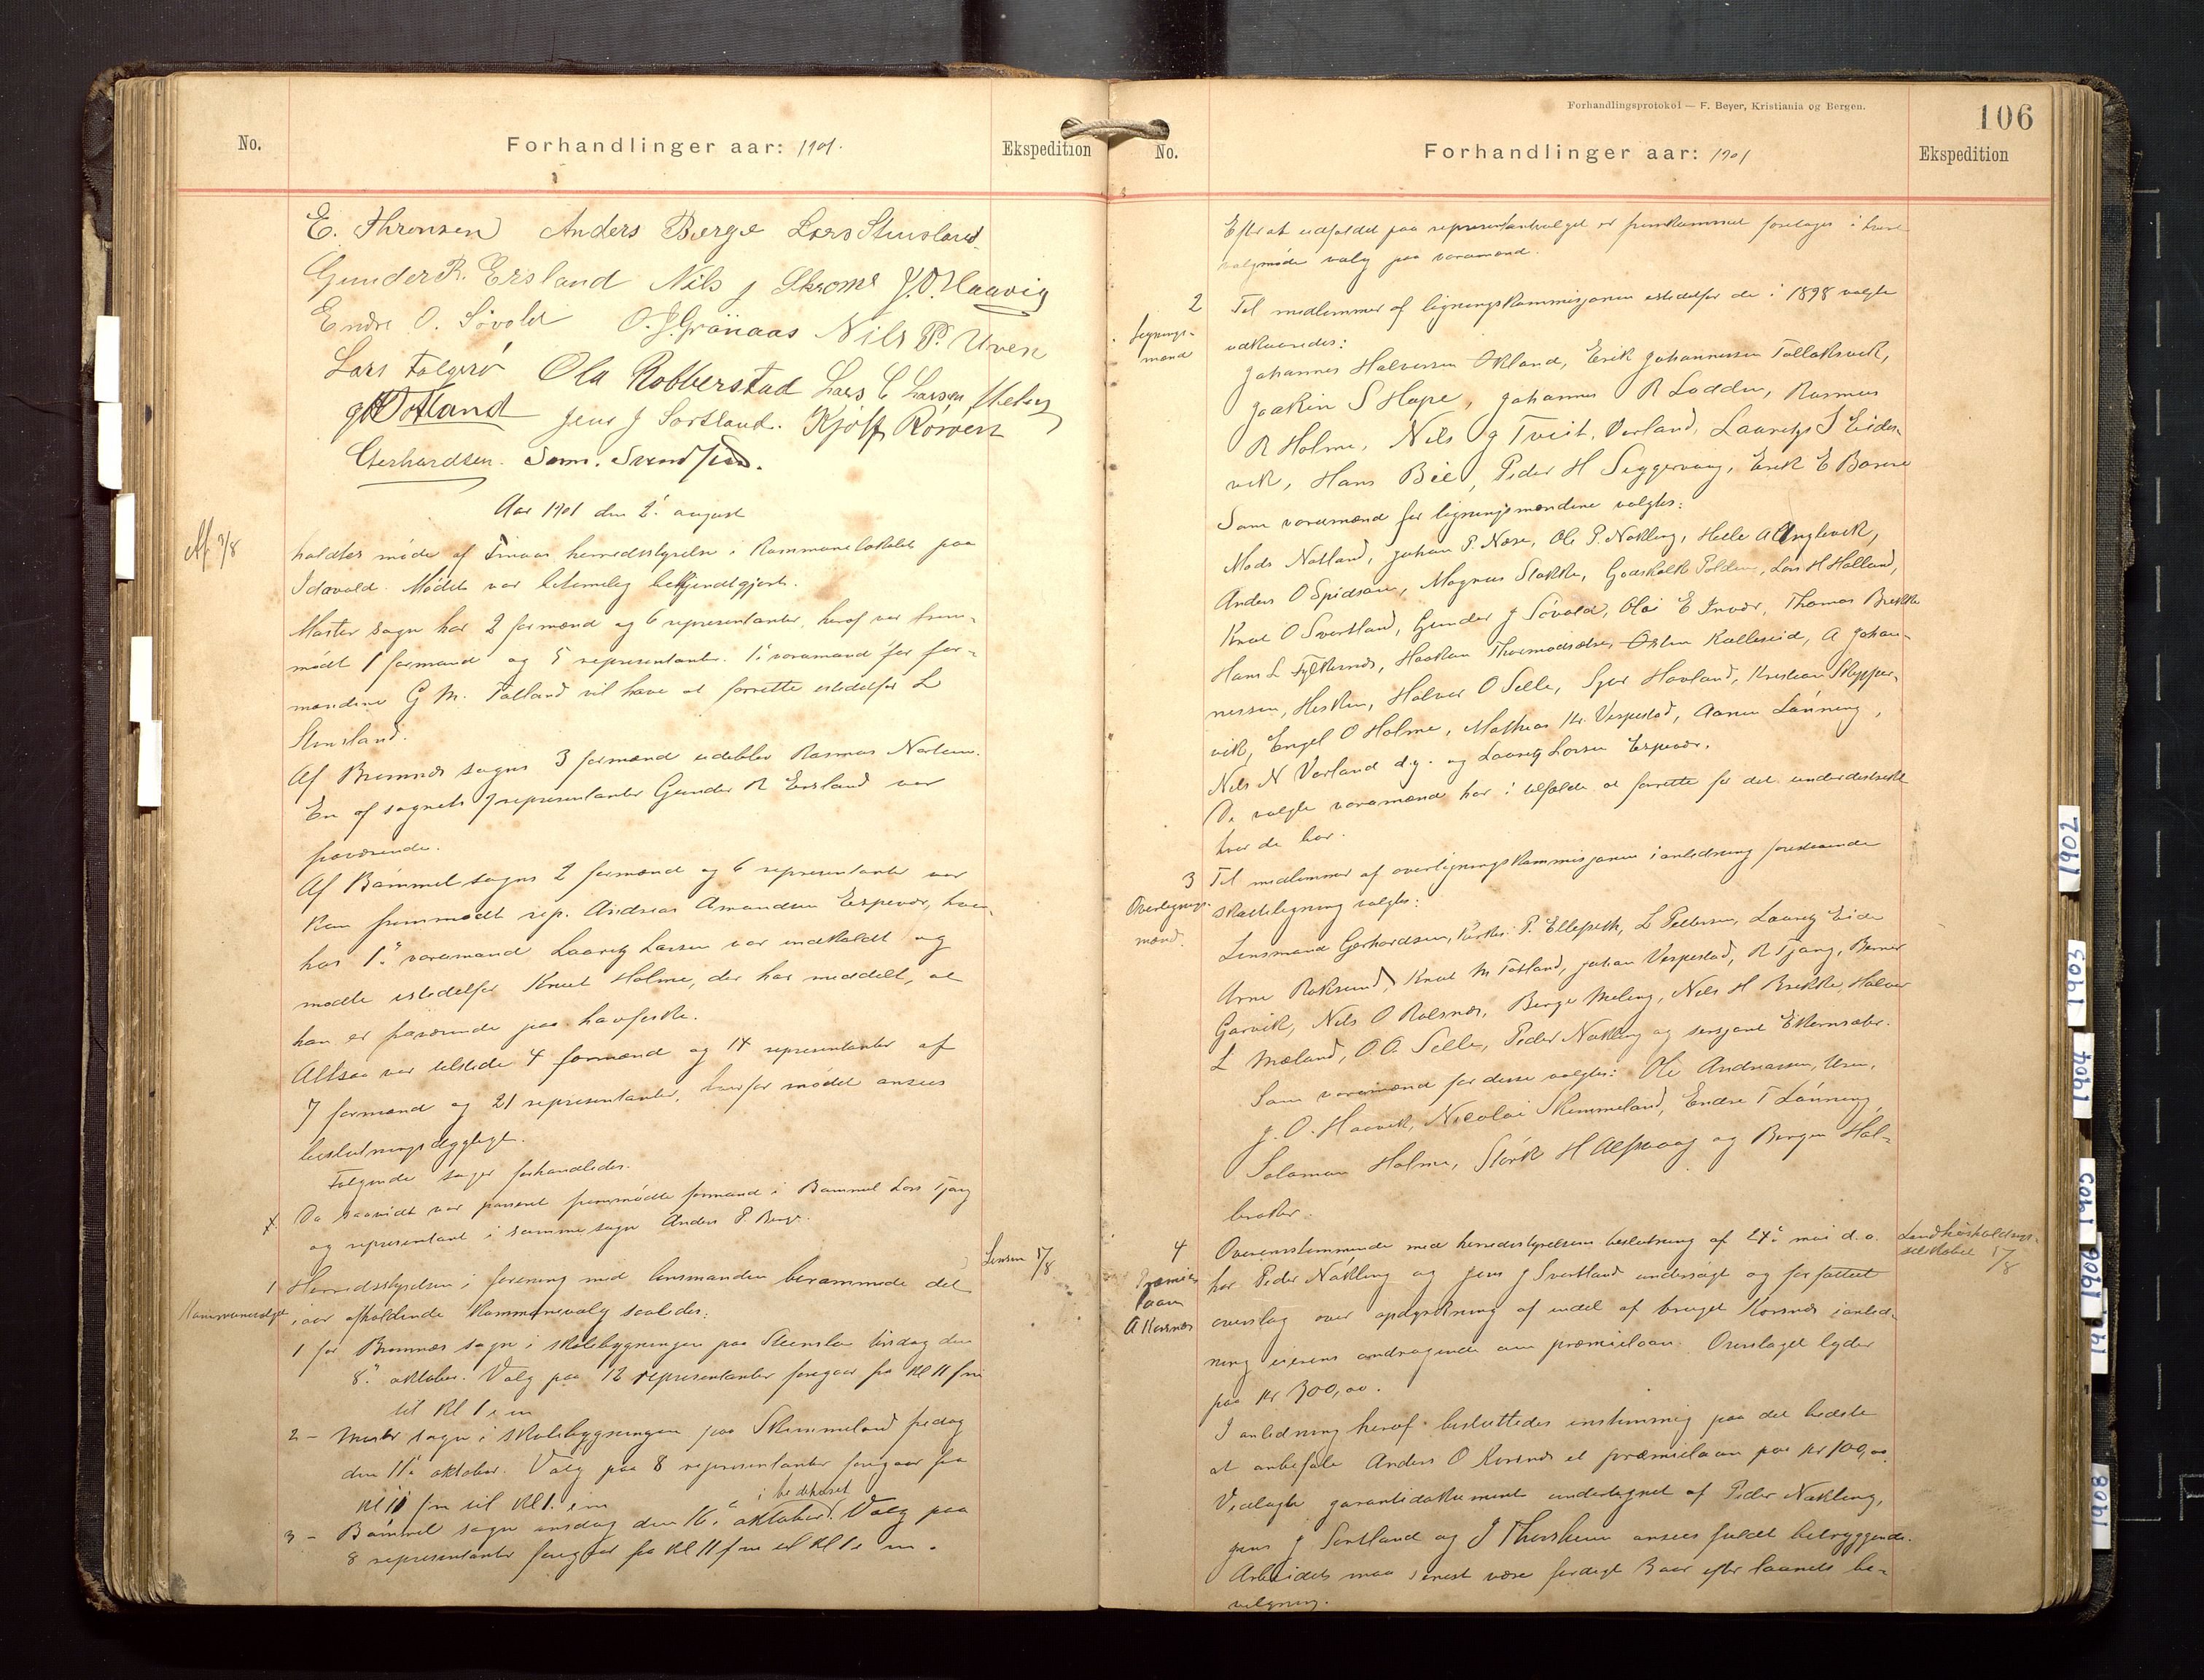 No.
Forhandlinger aar: 1901.
Ekspedition
E. Thronsen Anders Berge Lars Stensland
Gunder R. Eesland Nils J Skrome J. O. Haavig
Endre O. Søvold O. J. Grönaas Nils P. Uren
Lars Folgerø Ola Robberstad Lars C Larsen
Totland Jens J Sortland. Kjøl
Gerhardsen. Som. Svendsen.
Aar 1901 den 2. august
Af. 3/8
holdtes møde af Finaas herredsstyrelse i kommunelokalet paa
Idavald. Mødet var betimelig bekjendtgjort.
Moster sogn har 2 formænd og 6 representanter, heraf var frem-
mødt 1 formand og 5 representanter. 1. varamand for for-
mændene G M. Totland vil have at forrette istedetfor L
Stensland.
Af Bremnes sogns 3 formænd udeblev Rasmus
En af sognets 9 representanter Gunder R Eesland var
fraværende.
Af Bømmel sogns 2 formænd og 6 representanter var
kun fremmødt rep. Andreas Amundsen Espevær, hvor-
hos 1. varamand Lauritz Larsen var indkaldt og
mødte istedetfor Knut Holme, der har meddelt, at
han er fraværende paa havfiske.
Altsaa var tilstede 4 formænd og 14 representanter af
7 formænd og 21 representanter, hvorfor mødet ansees
beslutningsdygtigt.
Følgende sager forhandledes.
Da saavidt var passeret fremmødte formand i Bømmel Lars Tjong
og representant i samme sogn Anders P. Berge.
1
Kommunevalget
Herredsstyrelsen i forening med lensmanden berammede det
iaar afholdende kommunevalg saaledes:
Lensm 17/8
1 for Bremnes sogn i skolebygningen paa Steinsbø tirsdag den
8. oktober. Valg paa 12 representanter foregaar fra kl 11 fm
til kl 1 e m
2 – Moster sogn i skolebygningen paa Skimmeland fredag
den 11. oktober. Valg paa 8 representanter foregaar fra
kl 11 fm til kl 1. em
3 – Bømmel sogn onsdag den 16. oktober i bedehuset. Valg paa
8 representanter foregaar fra kl 11 fm til kl 1 e m.
Forhandlingsprotokol — F. Beyer, Kristiania og Bergen.
106
No.
Forhandlinger aar: 1901
Ekspedition
Efterat udfaldet paa representantvalget er fremkommet foretages i hvert
valgmøde valg paa varamænd.
2
Lignings-
mænd
Til medlemmer af ligningskommisjonen istedetfor de i 1898 valgte
udkaaredes:
Johannes Halversen Økland, Erik Johannessen Tollaksvik,
Joakim S Hope, Johannes R Lodden, Rasmus
R Holme, Nils J Tveit, Vorland, Lauritz J Eides-
vik, Hans Bie, Peder H Siggervaag, Erik E
Som varamænd for ligningsmændene valgtes:
Mads Notland, Johan P. Næse, Ole P. Nøkling, Helle A
Anders O Spidsøen, Magnus Stokke, Godskalk Folderø, Lars H Holland,
Knut O Svortland, Gunder J Søvold, Olai E Innvær, Thomas Brekke
Hans L Fylkesnes, Haakon Thormodsæter, Østen Kalleseid, A Johan-
nessen, Hisken, Halvor O Selle, Sjur Hovland, Kristian Skipper-
vik, Engel O Holme, Mathias Kr. Vespestad, Aamund Lønning,
Nils N Vorland d.y. og Lauritz Larsen Espevær.
De valgte varamænd har i tilfælde at forrette for det underdistrikt
hvor de bor.
3
Overlignings-
mænd.
Til medlemmer af overligningskommisjonen i anledning forestaaende
skatteligning valgtes:
Lensmand Gerhardsen, Kirkes. P. Ellefseth, L Pettersen, Lauritz Eide
Arne Roksund, Knut M Totland, Johan Vespestad, R Tjong, Berner
Gorvik, Nils O Rolsnes, Børge Meling, Nils H Brekke, Halvor
L Mæland, O. A. Selle, Peder Nøkling og sersjant Ekornsæter.
Som varamænd for disse valgtes: Ole Andreassen, Uren,
J. O. Haavik, Nicolai Skimmeland, Endre T Lønning,
Salomon Holme, Størk H Alfsvaag og Børge Hal-
leraker.
4
Præmie
laan
A Korsnes
Overensstemmende med herredsstyrelsens beslutning af 24. mai d. a.
har Peder Nøkling og Jens J Svortland undersøgt og forfattet
overslag over opdyrkning af endel af bruget Korsnes i anled-
ning eierens andragende om præmielaan. Overslaget lyder
paa kr 300,00.
Landhusholdnings-
selskabet 17/8
I anledning heraf besluttedes enstemmig paa det bedste
at anbefale Anders O Korsnes et præmielaan paa kr 100,00.
Vedlagte garantidokument undertegnet af Peder Nøkling,
Jens J Sortland og J Thorsheim ansees fuldt betryggende.
Arbeidet maa senest være færdigt 3 aar efter laanets be-
vilgning.
1902
1903
1904
1905
1906
1908